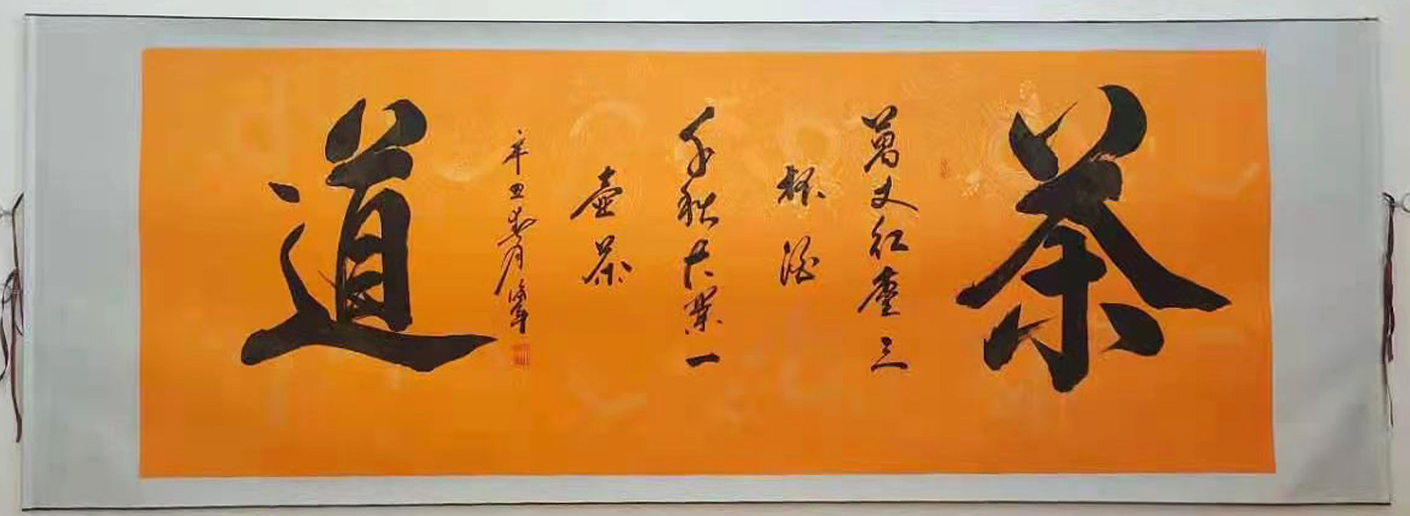 茶
萬丈紅塵三
杯酒
千秋大業一
壺茶
辛丑春月
道